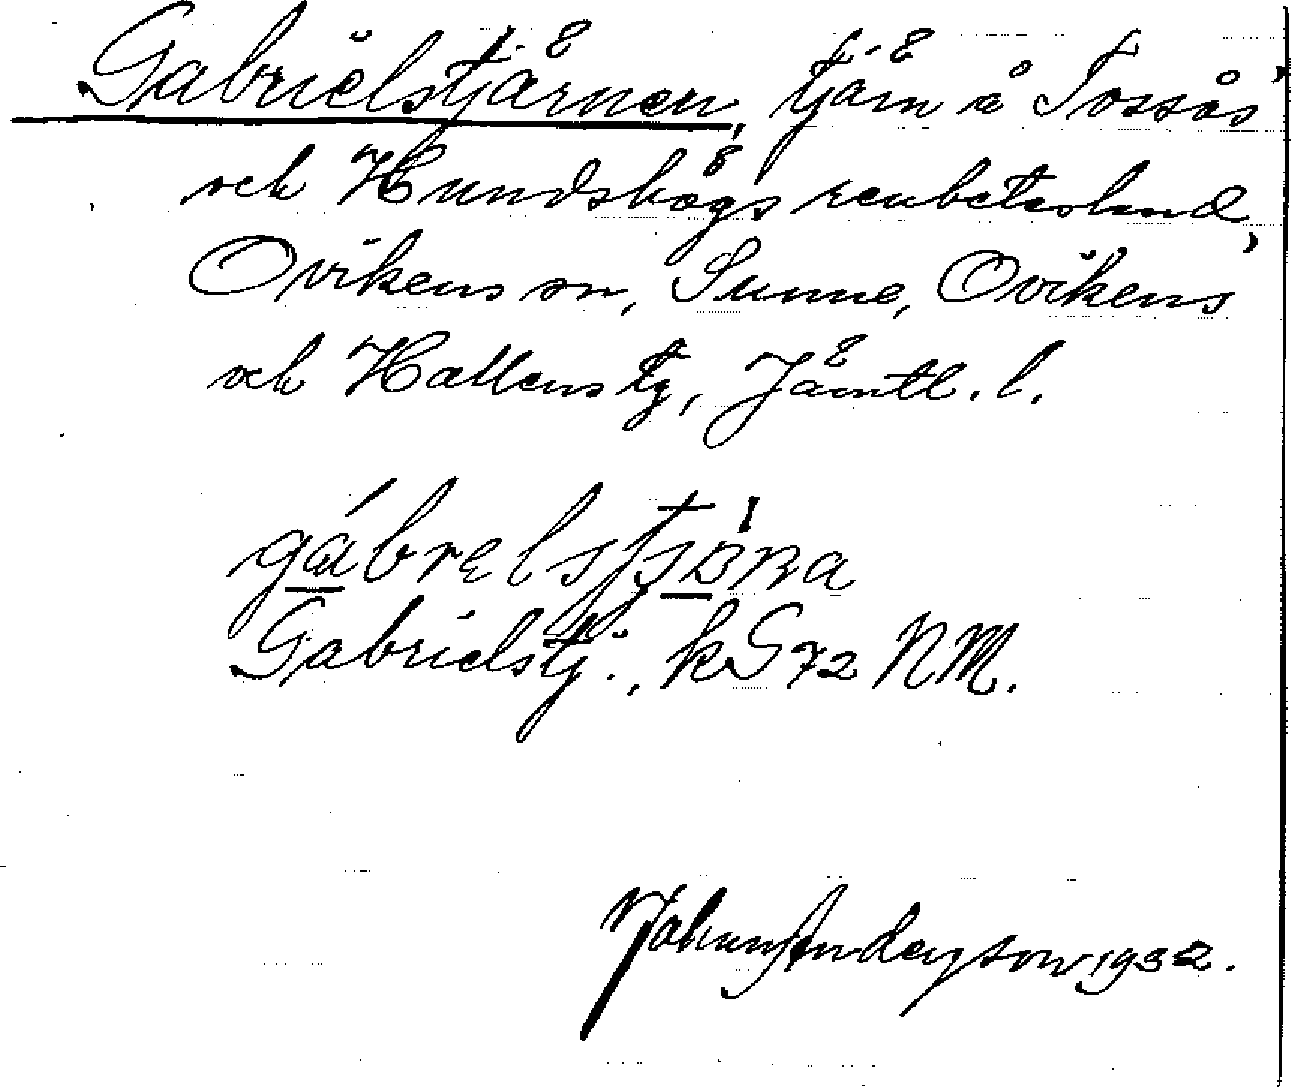 Gabrielstjärnen, tjärn å Tossås'
och Hundshögs renbetesland,
Ovikens sn, Sunne, Ovikens
och Hallens tg, Jämtl. l.
Gabrielstj., kS 72 NM.
Andersson 1932.